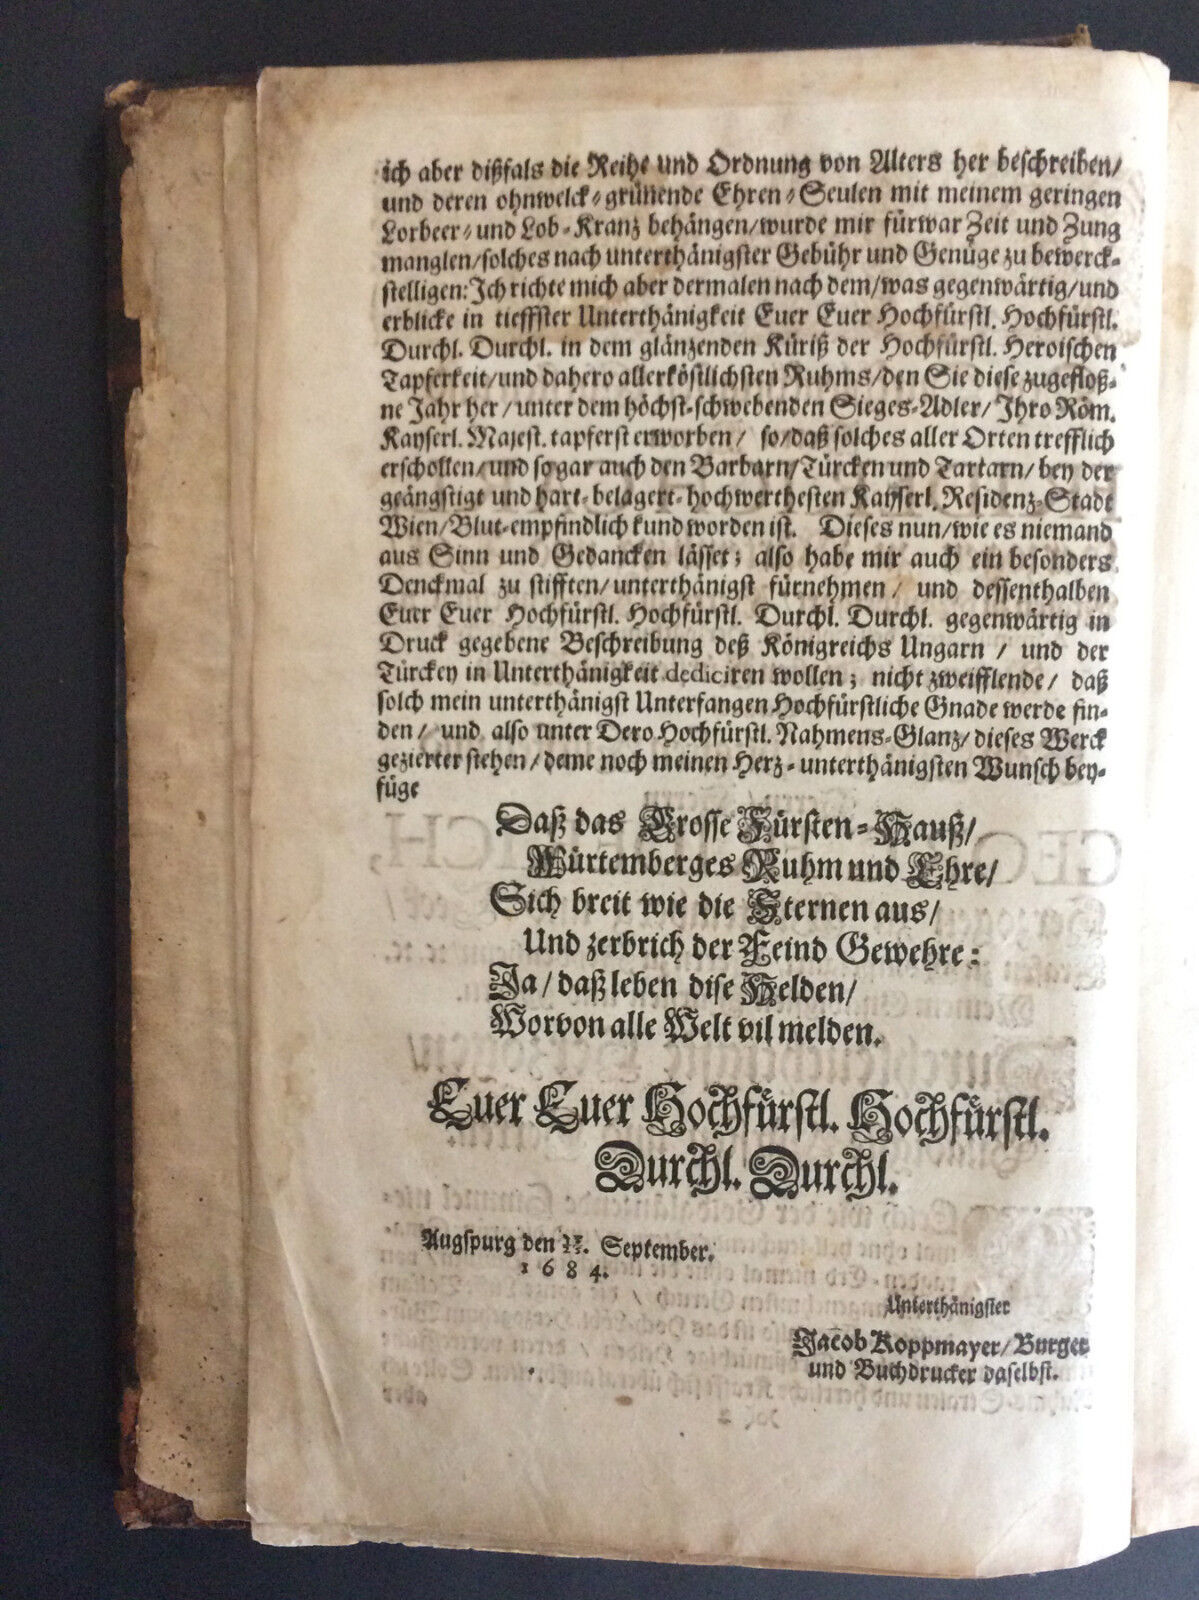 ich aber dißfals die Reihe und Ordnung von Alters her beschreiben/
und deren ohnwelck-grünende Ehren-Seulen mit meinem geringen
Lorbeer-und Lob-Kranz behängen/wurde mir fürwar Zeit und Zung
manglen/solches nach unterthänigster Gebühr und Genüge zu bewerck-
stelligen: Ich richte mich aber dermalen nach dem/was gegenwärtig/und
erblicke in tieffster Unterthänigkeit Euer Euer Hochfürstl. Hochfürstl.
Durchl. Durchl. in dem glänzenden Küriß der Hochfürstl. Heroischen
Tapferkeit/und dahero allerköstlichsten Ruhms/den Sie diese zugefloß-
ne Jahr her/unter dem höchst-schwebenden Sieges-Adler/Ihro Röm.
Kayserl. Majest. tapferst erworben/ so/daß solches aller Orten trefflich
erschollen/und sogar auch den Barbarn/Türcken und Tartarn/bey der
geängstigt und hart-belägert-hochwerthesten Kayserl. Residenz-Stadt
Wien/Blut-empfindlich kund worden ist. Dieses nun/wie es niemand
aus Sinn und Gedancken lässet; also habe mir auch ein besonders
Denckmal zu stifften/unterthänigst fürnehmen/ und dessenthalben
Euer Euer Hochfürstl. Hochfürstl. Durchl. Durchl. gegenwärtig in
Druck gegebene Beschreibung deß Königreichs Ungarn/ und der
Türckey in Unterthänigkeit dediciren wollen; nicht zweifflende/ daß
solch mein unterthänigst Unterfangen Hochfürstliche Gnade werde fin-
den/ und also unter Dero Hochfürstl. Nahmens-Glanz/dieses Werck
gezierter stehen/deme noch meinen Herz-unterthänigsten Wunsch bey-
füge
Daß das Grosse Fürsten-Hauß/
Würtemberges Ruhm und Ehre/
Sich breit wie die Sternen aus/
Und zerbrich der Feind Gewehre:
Ja/daß leben dise Helden/
Worvon alle Welt vil melden.
Euer Euer Hochfürstl. Hochfürstl.
Durchl. Durchl.
Augspurg den September.
1684.
Unterthänigster
Jacob Koppmayer/Burger
und Buchdrucker daselbst.